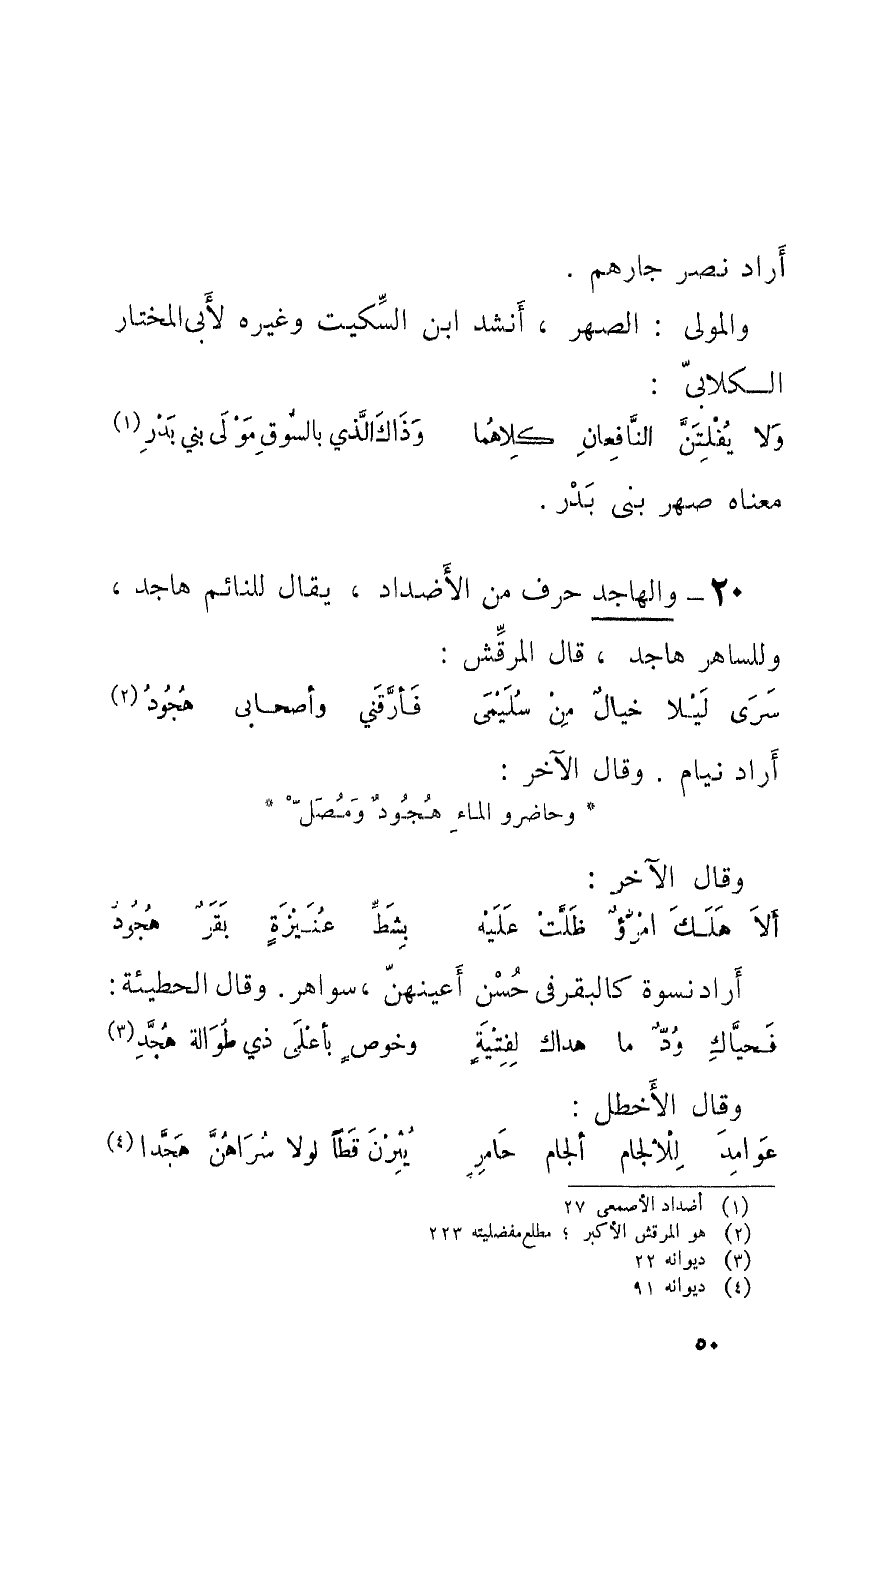 أَراد نصر جارهم .
والمولى : الصهر ، أَنشد ابن السِّكيت وغيره لأَبى المختار
الكلابىّ :
وَلا يُفْلِتَنَّ النَّافِعانِ كِلاهُما وَذَاكَ الَّذي بالسُّوقِ مَوْلَى بني بَدْرِ (١)
معناه صهر بنى بَدْر .
٢٠ - والهاجد حرف من الأَضداد ، يقال للنائم هاجد ،
وللساهر هاجد ، قال المرقِّش :
سَرَى لَيْلا خيالٌ مِنْ سُلَيْمَى فَأرَّقَني وأصحابى هُجُودُ (٢)
أَراد نيام . وقال الآخر :
* وحاضرو الماءِ هُجُودٌ وَمُصَلّْ *
وقال الآخر :
أَلاَ هَلَكَ امْرُؤٌ ظَلَّتْ عَلَيْه بِشَطِّ عُنَيْزَةٍ بَقَرٌ هُجُودُ
أَراد نسوة كالبقر فى حُسْن أَعينهنّ ، سواهر . وقال الحطيئة :
فَحيَّاكِ وُدٌّ ما هداك لِفِتْيَةٍ وخوصٍ بأعْلَى ذي طُوَالة هُجَّدِ (٣)
وقال الأَخطل :
عَوَامِدَ لِلْألجام ألجام حَامِرٍ يُثِرْنَ قَطًا لولا سُرَاهُنَّ هَجَّدا (٤)
(١) أضداد الأصمعى ٢٧
(٢) هو المرقش الأكبر ؛ مطلع مفضليته ٢٢٣
(٣) ديوانه ٢٢
(٤) ديوانه ٩١
٥٠